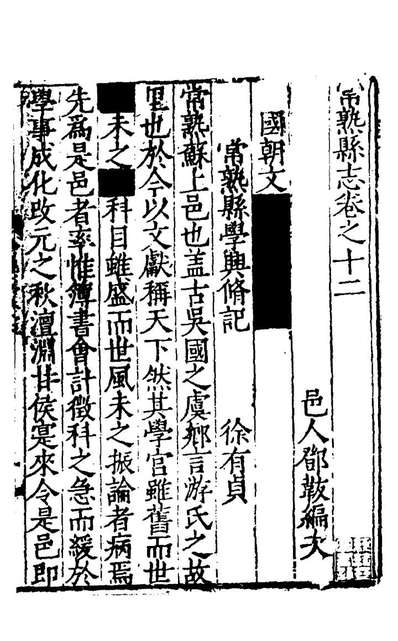 常熟縣志卷之十二
邑人鄧韍編次
國朝文
常熟縣學興脩記 徐有貞
常熟蘇上邑也盖古吳國之虞鄉言游氏之故
里也於今以文獻稱天下然其學官雖舊而世
未之 科目雖盛而世風未之振論者病焉
先爲是邑者率惟簿書會計徵科之急而緩於
學事成化改元之秋澶淵甘侯寔來令是邑即